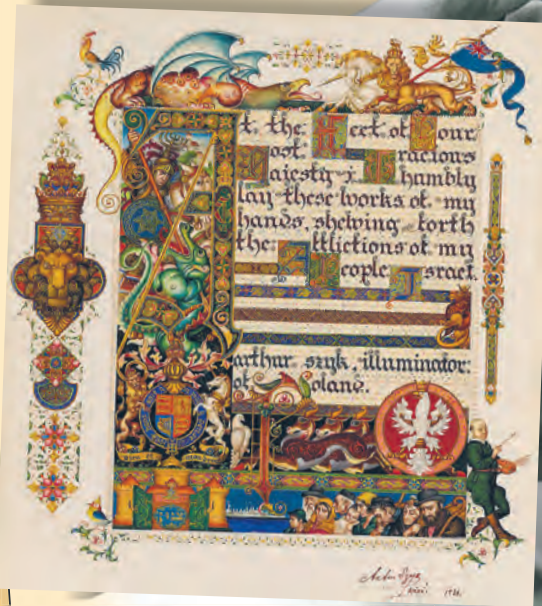 At. the: Feet. of. Your
Most. Gracious
Majesty. i. humbly
lay these works of. my
hands, shewing forth
the: Afflictions of. my
People Israel.
arthur szyk, illuminator:
of Poland.
Arthur Szyk